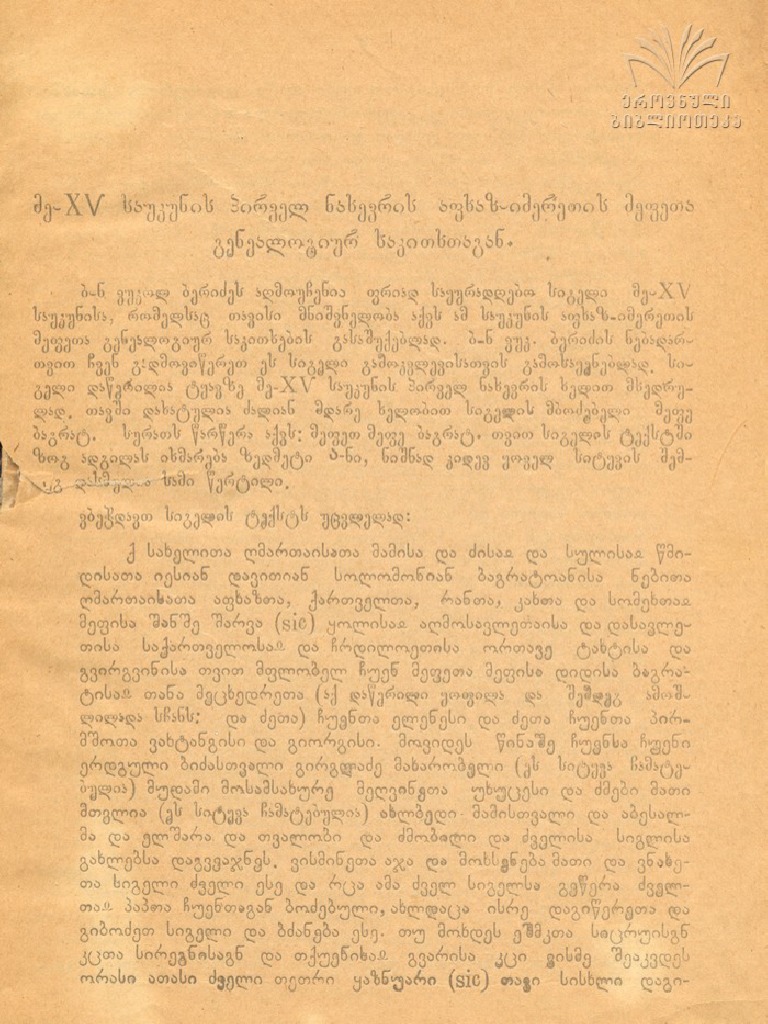 ეროვნული
ბიბლიოთეკა
მე-XV საუკუნის პირველ ნახევრის აფხაზ-იმერეთის მეფეთა
გენეალოგიურ საკითხთაგან.
ბ-ნ ვუკოლ ბერიძეს აღმოუჩენია ფრიად საყურადღებო სიგელი მე-XV
საუკუნისა, რომელსაც თავისი მნიშვნელობა აქვს ამ საუკუნის აფხაზ-იმერეთის
მეფეთა გენეალოგიურ საკითხების გასაშუქებლად. ბ-ნ ვუკ. ბერიძის ნებადარ-
თვით ჩვენ გადმოვიწერეთ ეს სიგელი გამოკვლევისათვის გამოსაყენებლად. სი-
გელი დაწერილია ტყავზე მე-XV საუკუნის პირველ ნახევრის ხელით მხედრუ-
ლად. თავში დახატულია ძალიან მდარე ხელობით სიგელის მბოძებელი მეფე
ბაგრატ. სურათს წარწერა აქვს: მეფეთ მეფე ბაგრატ. თვით სიგელის ტექსტში
ზოგ ადგილას იხმარება ზედმეტი ჰ-ნი, ნიშნად კიდევ ყოველ სიტყვის შემ-
დასმულია სამი წერტილი.
ვბეჭდავთ სიგელის ტექსტს უცვლელად:
ქ სახელითა ღმართაისათა მამისა და ძისაჲ და სულისაჲ წმი-
დისათა იესიან დავითიან სოლომონიან ბაგრატოანისა ნებითა
ღმართაისათა აფხაზთა, ქართველთა, რანთა, კახთა და სომეხთაჲ
მეფისა შანშე შარვა (sic) ყოლისაჲ აღმოსავლეთაისა და დასავლე-
თისა საქართველოსაჲ და ჩრდილოეთისა ორთავე ტახტისა და
გვირგვინისა თვით მფლობელ ჩუენ მეფეთა მეფისა დიდისა ბაგრა-
ტისაჲ თანა მეცხედრეთა (აქ დაწერილი ყოფილა და შემდეგ ამოშ-
ლილადა სჩანს: და ძეთა) ჩუენთა ელენესი და ძეთა ჩუენთა პირ-
მშოთა ვახტანგისი და გიორგისი. მოვიდეს წინაშე ჩუენსა ჩუენი
ერდგული ბიძასთვალი გირგლაძე მახარობელი (ეს სიტყვა ჩამატე-
ბულია) მუდამი მოსამსახურე მეღვინეთა უხუცესი და ძმები მათი
მთვლია (ეს სიტყვა ჩამატებულია) ახლბედი მამისთვალი და აბესალ-
მა და ელშარა და თვალობი და ძმობილი და ძველისა სიგლისა
გახლებსა დაგვვაჯნეს. ვისმინეთა აჯა და მოხსენება მათი და ვნახე-
თა სიგელი ძველი ესე და რცა ამა ძველ სიგელსა გვწერა ძველ-
თაჲ პაპთა ჩუენთაგან ბოძებული, ახლდაცა ისრე დაგიწერეთა და
გიბოძეთ სიგელი და ბძანება ესე. თუ მოხდეს ეშმკთა საცრუისგნ
კცთა სირეგნისაგნ და თქუენისაჲ გვარისა კცი ვისმე შეაკვდეს
ორასი ათასი ძველი თეთრი ყაზნუარი (sic) თავი სისხლი დაგი-